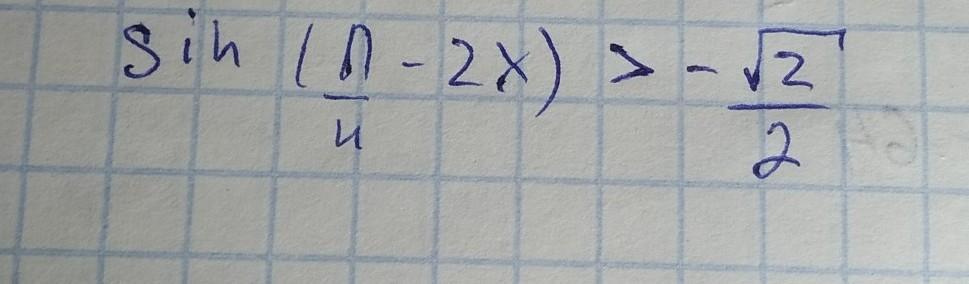 sin (π/4 - 2x) > - √2/2